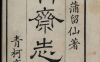 蒲留仙著
齋志
青柯